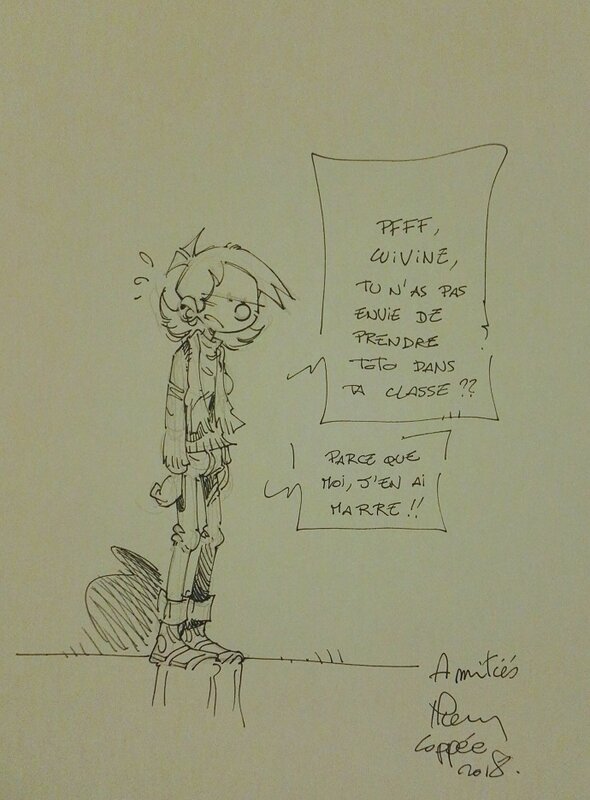 PFFF,
WIVINE,
TU N'AS PAS
ENVIE DE
PRENDRE
TOTO DANS
TA CLASSE ??
PARCE QUE
MOI, J'EN AI
MARRE !!
Amitiés
Coppée
2018.